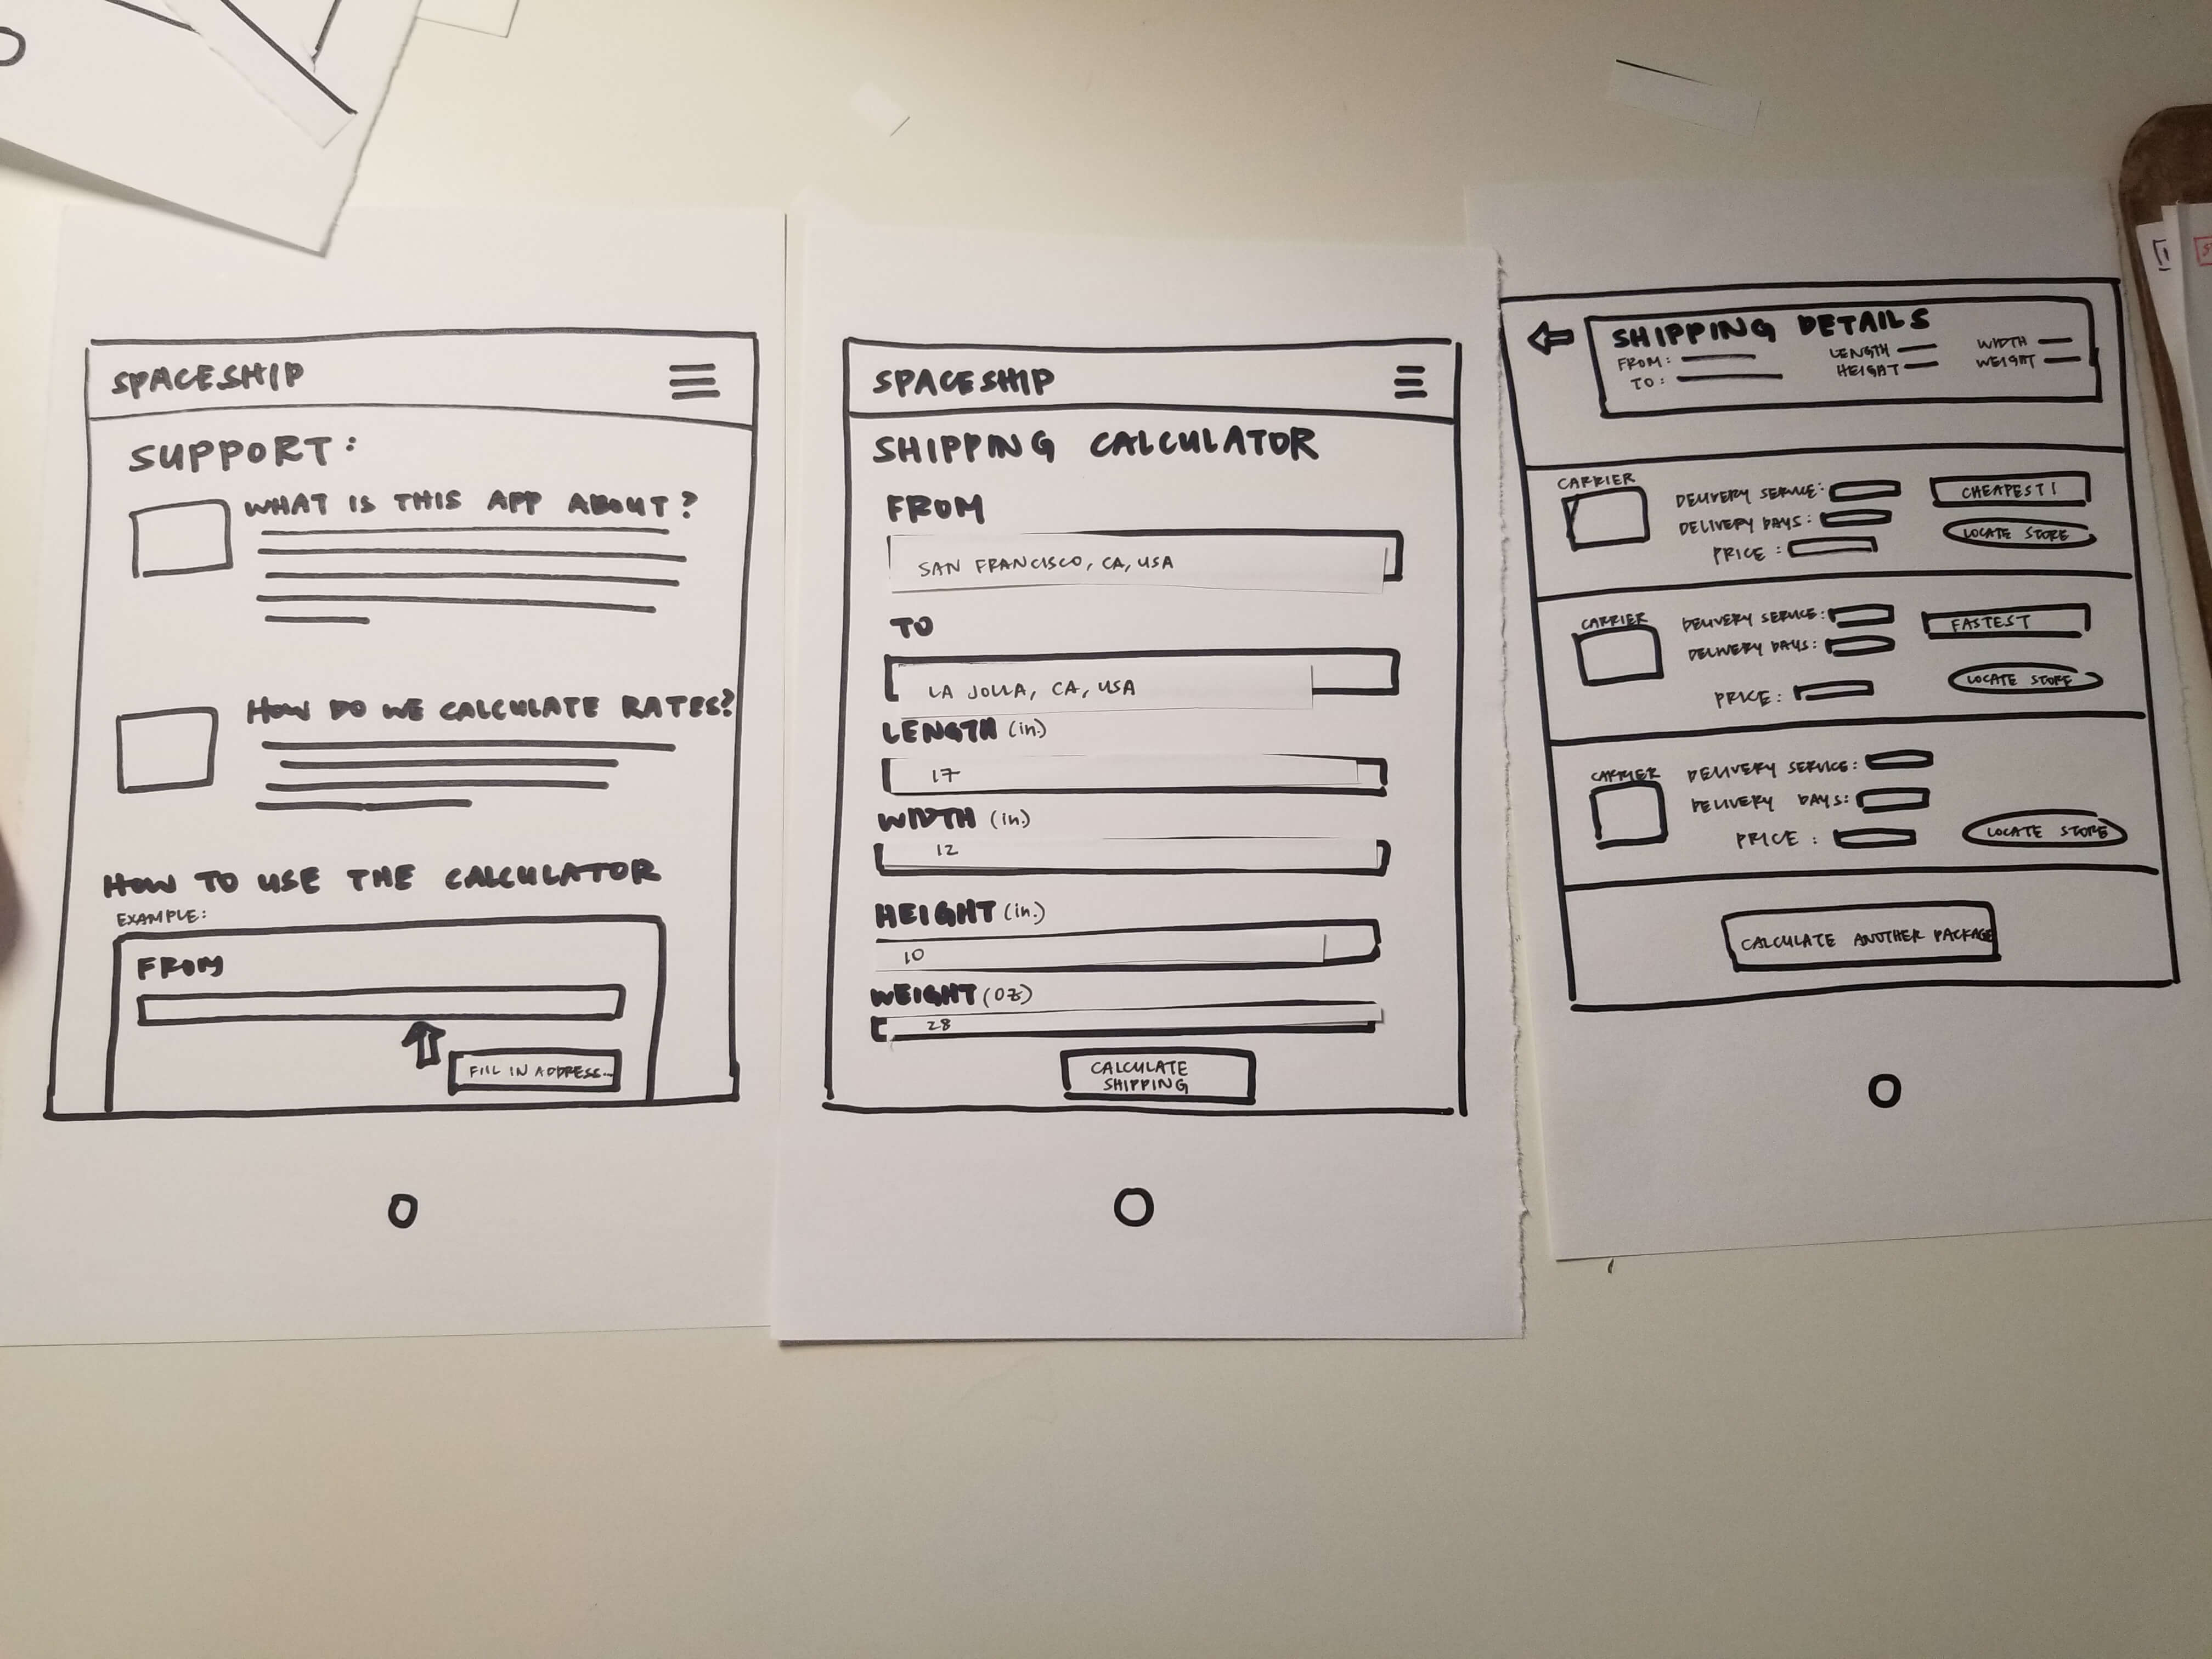 SPACESHIP
SUPPORT:
WHAT IS THIS APP ABOUT?
HOW DO WE CALCULATE RATES?
HOW TO USE THE CALCULATOR
EXAMPLE:
FROM
FILL IN ADDRESS...
SPACESHIP
SHIPPING CALCULATOR
FROM
SAN FRANCISCO, CA, USA
TO
LA JOLLA, CA, USA
LENGTH (in.)
17
WIDTH (in.)
12
HEIGHT (in.)
10
WEIGHT (oz)
28
CALCULATE
SHIPPING
SHIPPING DETAILS
FROM: LENGTH WIDTH
TO: HEIGHT WEIGHT
CARRIER
DELIVERY SERVICE: CHEAPEST!
DELIVERY DAYS: LOCATE STORE
PRICE:
CARRIER
DELIVERY SERVICE: FASTEST
DELIVERY DAYS:
PRICE: LOCATE STORE
CARRIER
DELIVERY SERVICE:
DELIVERY DAYS:
PRICE: LOCATE STORE
CALCULATE ANOTHER PACKAGE